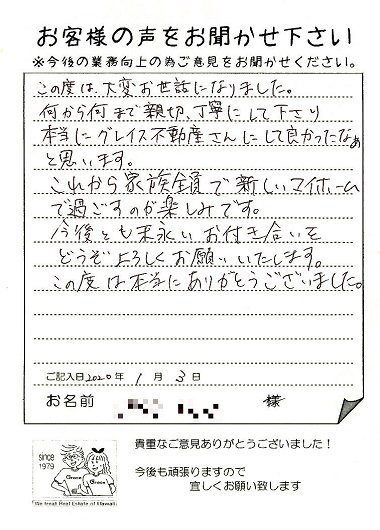 お客様の声をお聞かせ下さい
※今後の業務向上の為ご意見をお聞かせください。
この度は、大変お世話になりました。
何から何まで親切、丁寧にして下さり
本当にグレイス不動産さんにして良かったなぁ
と思います。
これから家族全員で新しいマイホーム
で過ごすのが楽しみです。
今後とも末永いお付き合いを
どうぞよろしくお願いいたします。
この度は本当にありがとうございました。
ご記入日2020年 1月 3日
お名前 様
since
1979
Grace Grace
We treat Real Estate of Hawaii
貴重なご意見ありがとうございました！
今後も頑張りますので
宜しくお願い致します